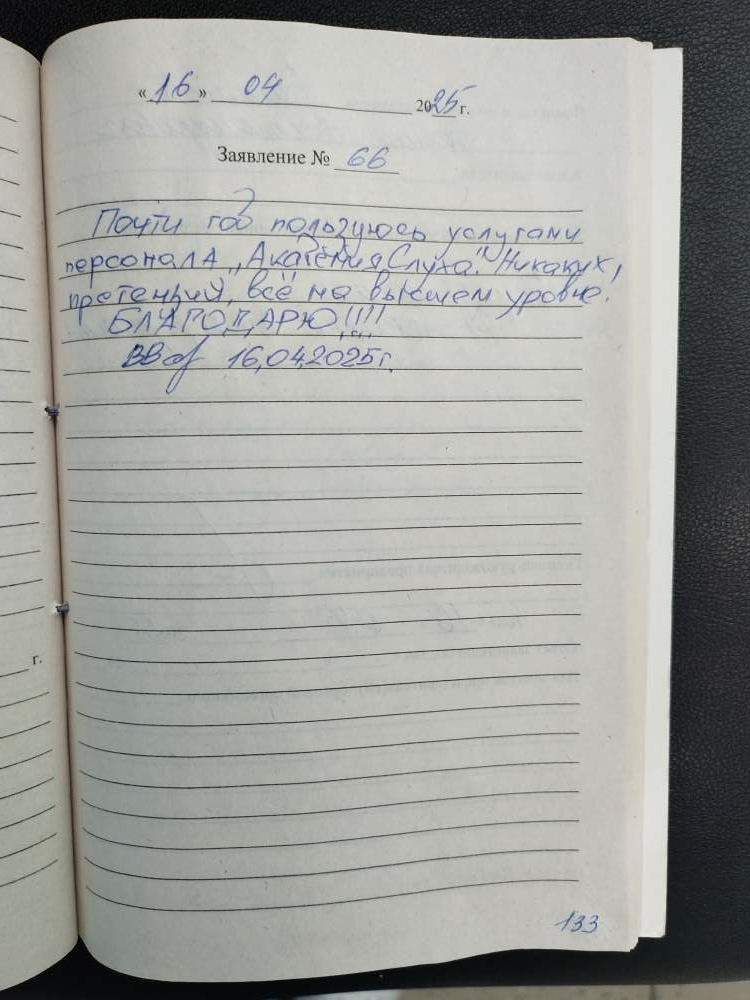 «16» 04 2025 г.
Заявление № 66
Почти год пользуюсь услугами
персонала „Академия Слуха". Никаких
претензий, всё на высшем уровне.
БЛАГОДАРЮ!!!!
16.04.2025г.
г.
133